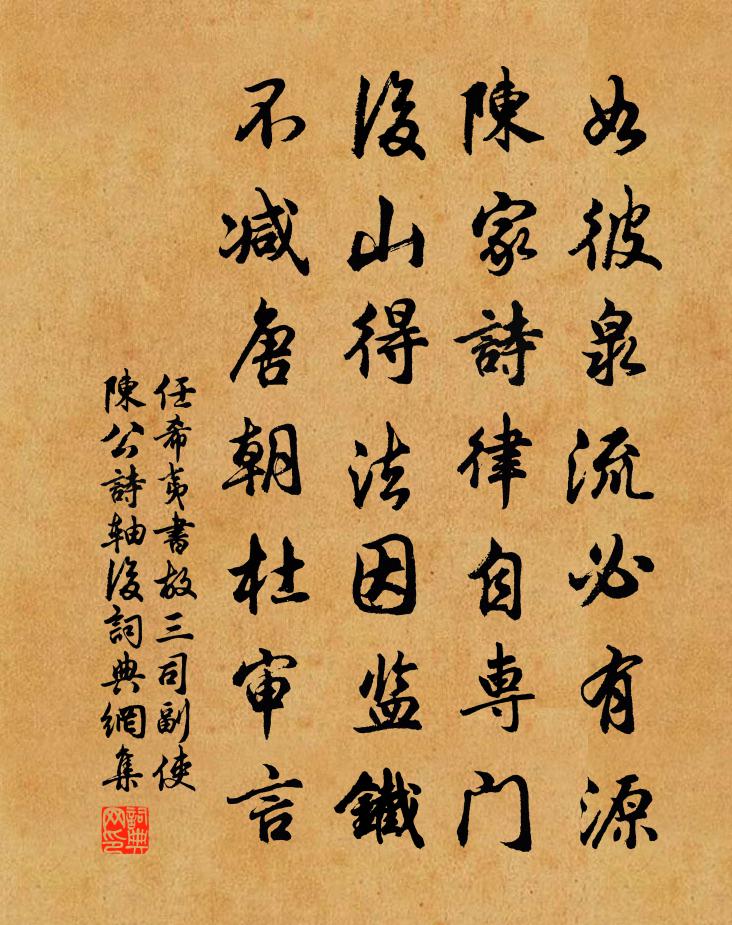 如彼泉流必有源
陳家詩律自専門
後山得法因监鐵
不减唐朝杜审言
任希夷書故三司副使
陳公詩轴後詞典網集
詞典网印